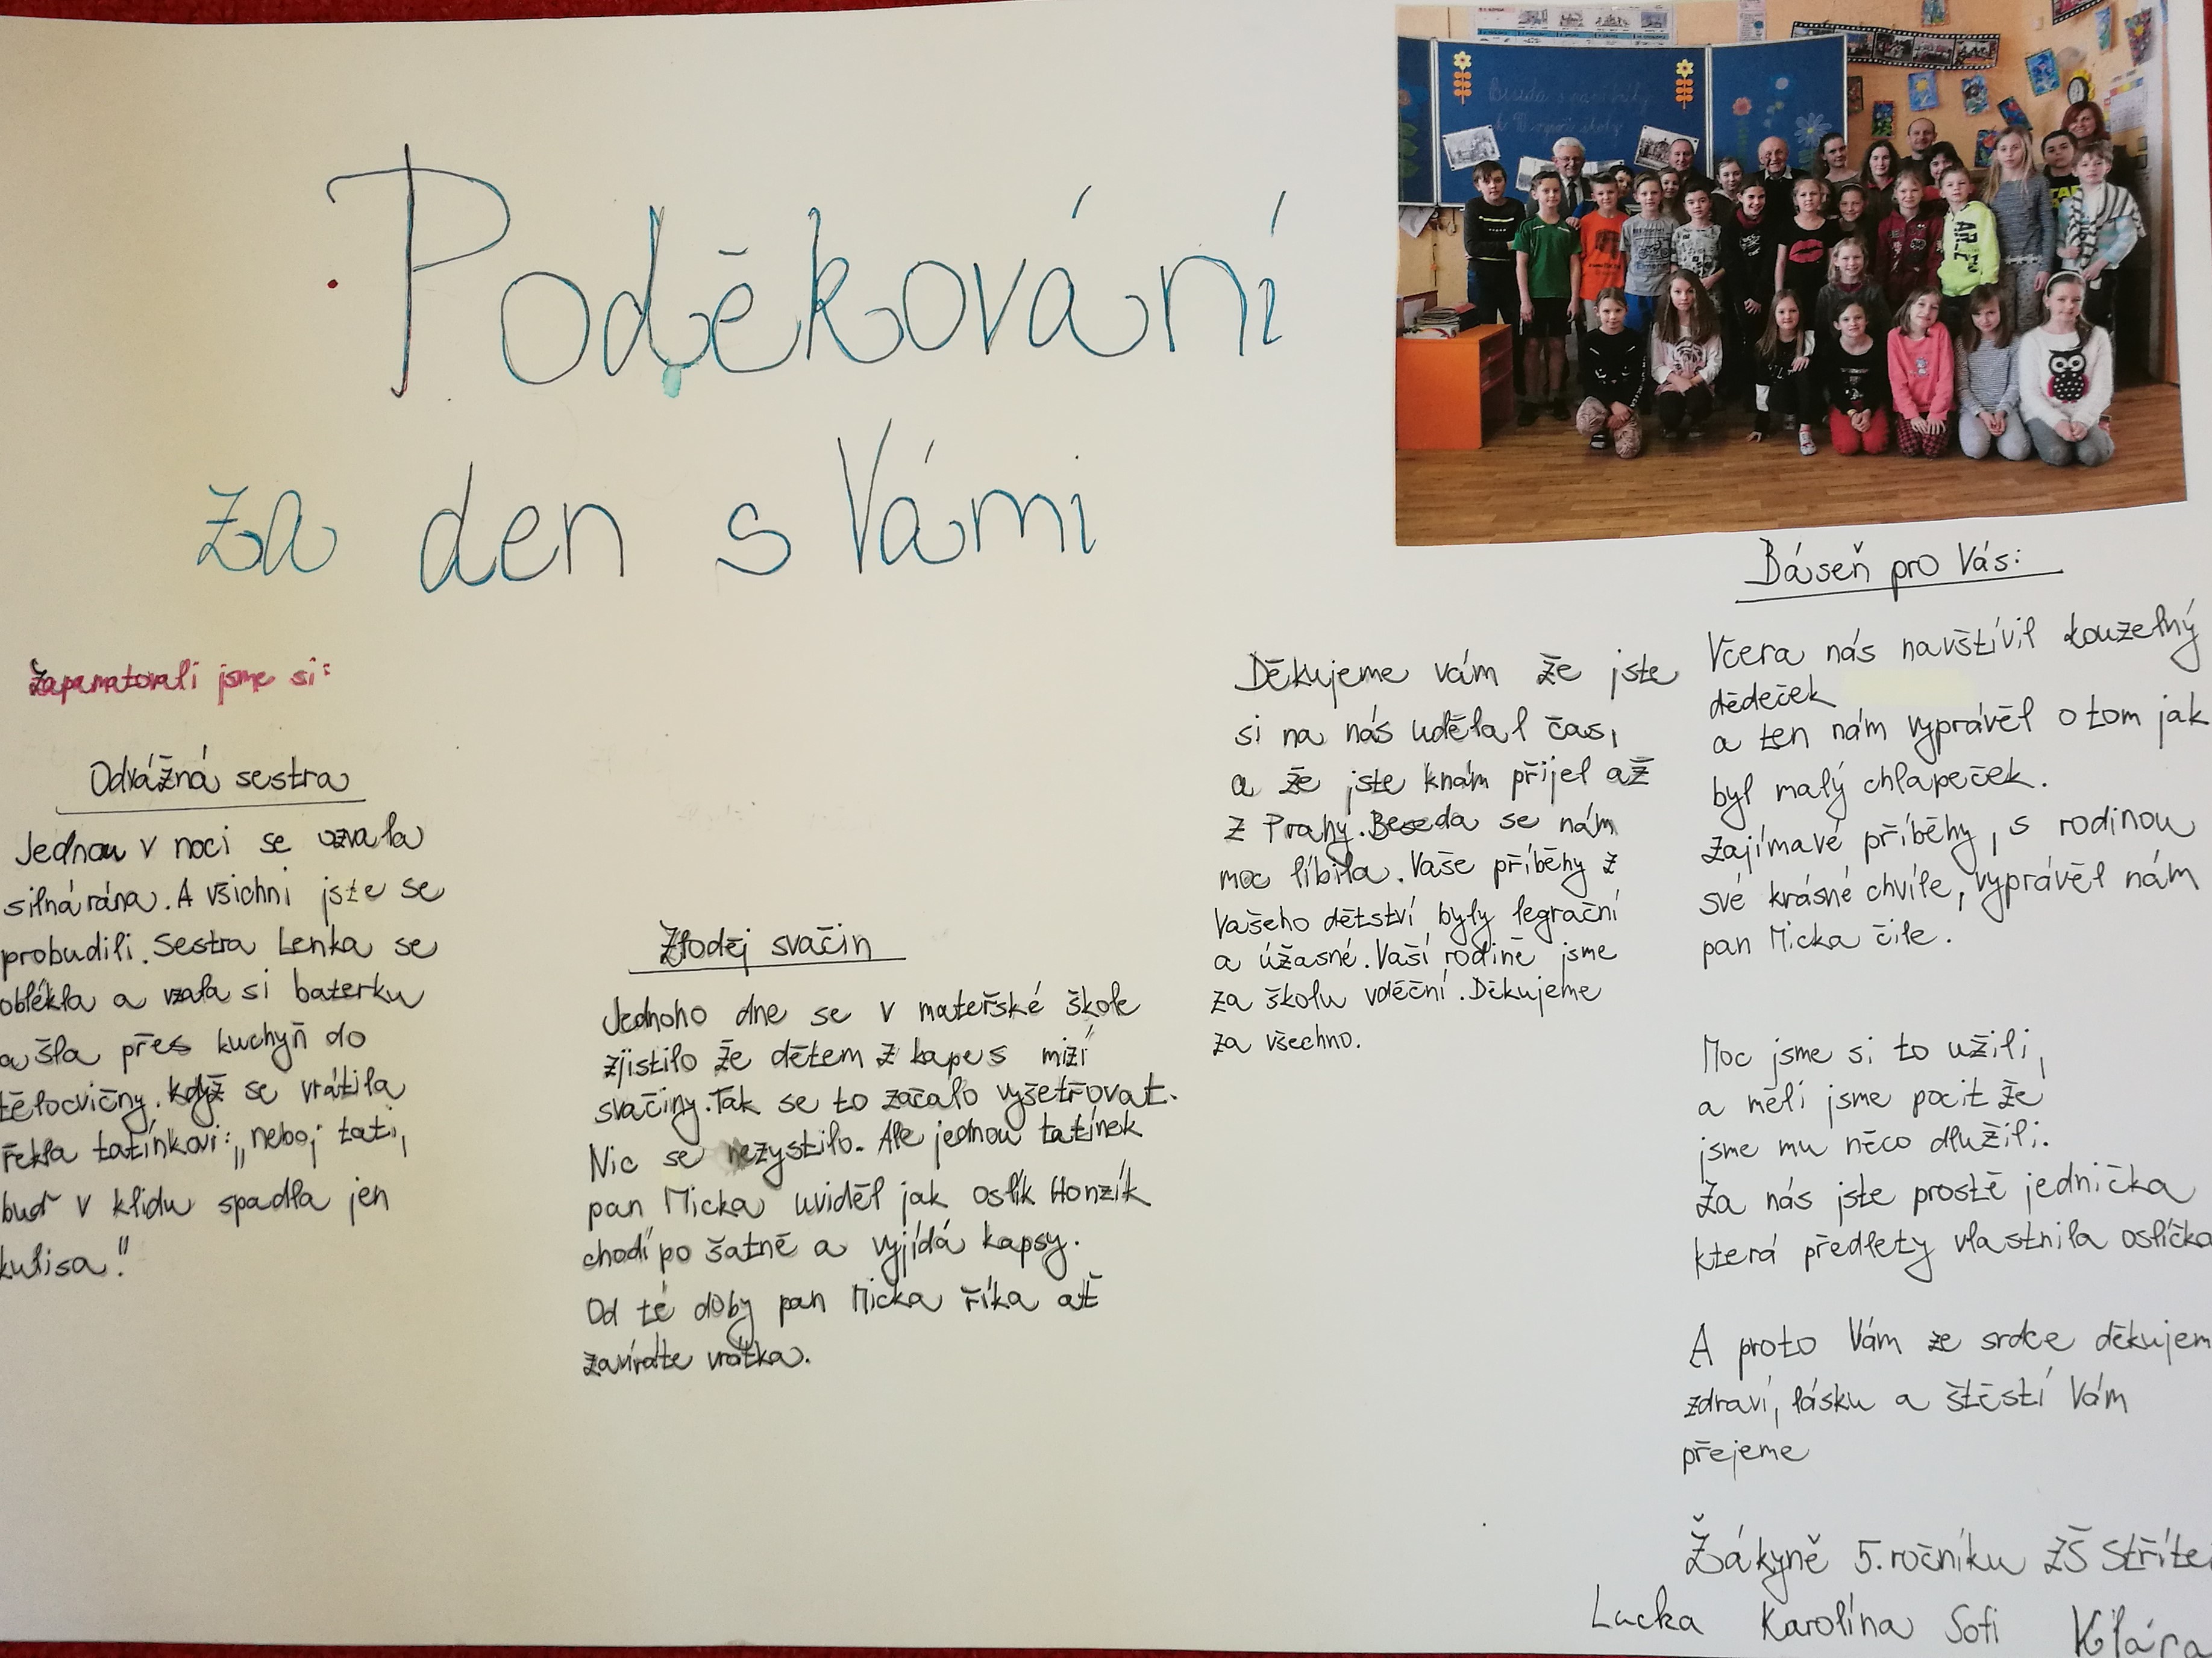 Poděkování
za den s Vámi
Zapamatovali jsme si:
Odvážná sestra
Jednou v noci se ozvala
silná rána. A všichni jste se
probudili. Sestra Lenka se
oblékla a vzala si baterku
a šla přes kuchyň do
tělocvičny. když se vrátila
řekla tatínkovi: „neboj tati,
buď v klidu spadla jen
kulisa."
Zloděj svačin
Jednoho dne se v mateřské škole
zjistilo že dětem z kapes mizí
svačiny. Tak se to začalo vyšetřovat.
Nic se nezystilo. Ale jednou tatínek
pan Micka uviděl jak oslík Honzík
chodí po šatně a vyjídá kapsy.
Od té doby pan Micka říka ať
zavíráte vrátka.
Děkujeme vám že jste
si na nás udělal čas,
a že jste knám přijel až
z Prahy. Beseda se nám
moc líbila. Vaše příběhy z
Vašeho dětství byly legrační
a úžasné. Vaší rodině jsme
za školu vděční. Děkujeme
za všechno.
Beseda s pamětníky
školy
TAP
ARE
Báseň pro Vás:
Včera nás navštívil kouzelný
dědeček
a ten nám vyprávěl o tom jak
byl malý chlapeček.
Zajímavé příběhy, s rodinou
své krásné chvíle, vyprávěl nám
pan Micka čile.
Moc jsme si to užili,
a měli jsme pocit že
jsme mu něco dlužili.
Za nás jste prostě jednička
která předlety vlastnila oslíčka
A proto Vám ze srdce děkujem
zdraví, lásku a štěstí Vám
přejeme
Žákyně 5. ročníku ZŠ Stříte
Lucka Karolína Sofi Klára